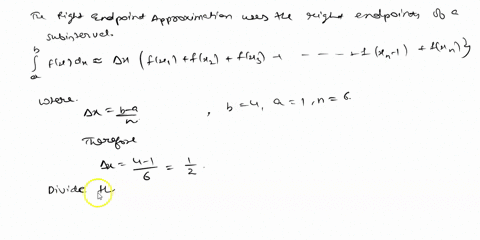 The Right Endpoint Approximation uses the right endpoints of a
subinterval.
∫_a^b f(x) dx ≈ Δx { f(x₁) + f(x₂) + f(x₃) + - - - - - + f(x_{n-1}) + f(x_n) }
where
Δx = b-a/n , b = 4, a = 1, n = 6
Therefore
Δx = 4-1/6 = 1/2.
Divide th